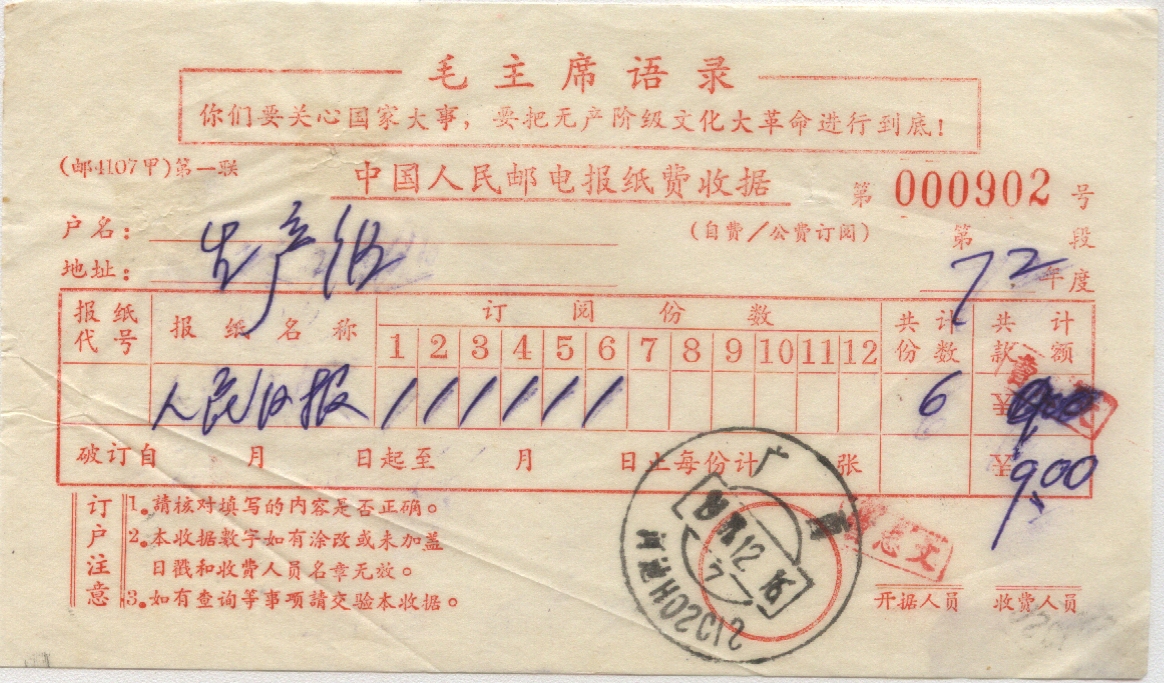 毛主席语录
你们要关心国家大事，要把无产阶级文化大革命进行到底！
(邮4107甲)第一联
中国人民邮电报纸费收据
第 000902 号
户名：
(自费／公费订阅)
第 段
生产
地址：
72 年度
报纸代号 报纸名称 订阅份数 共计份数 共计款额
1 2 3 4 5 6 7 8 9 10 11 12
人民日报 / / / / / / 6
破订自 月 日起至 月 日止每份计 张
9.00
订户注意
1。請核对填写的内容是否正确。
2。本收据数字如有涂改或未加盖
日戳和收费人员名章无效。
3。如有查询等事项請交验本收据。
开据人员 收费人员